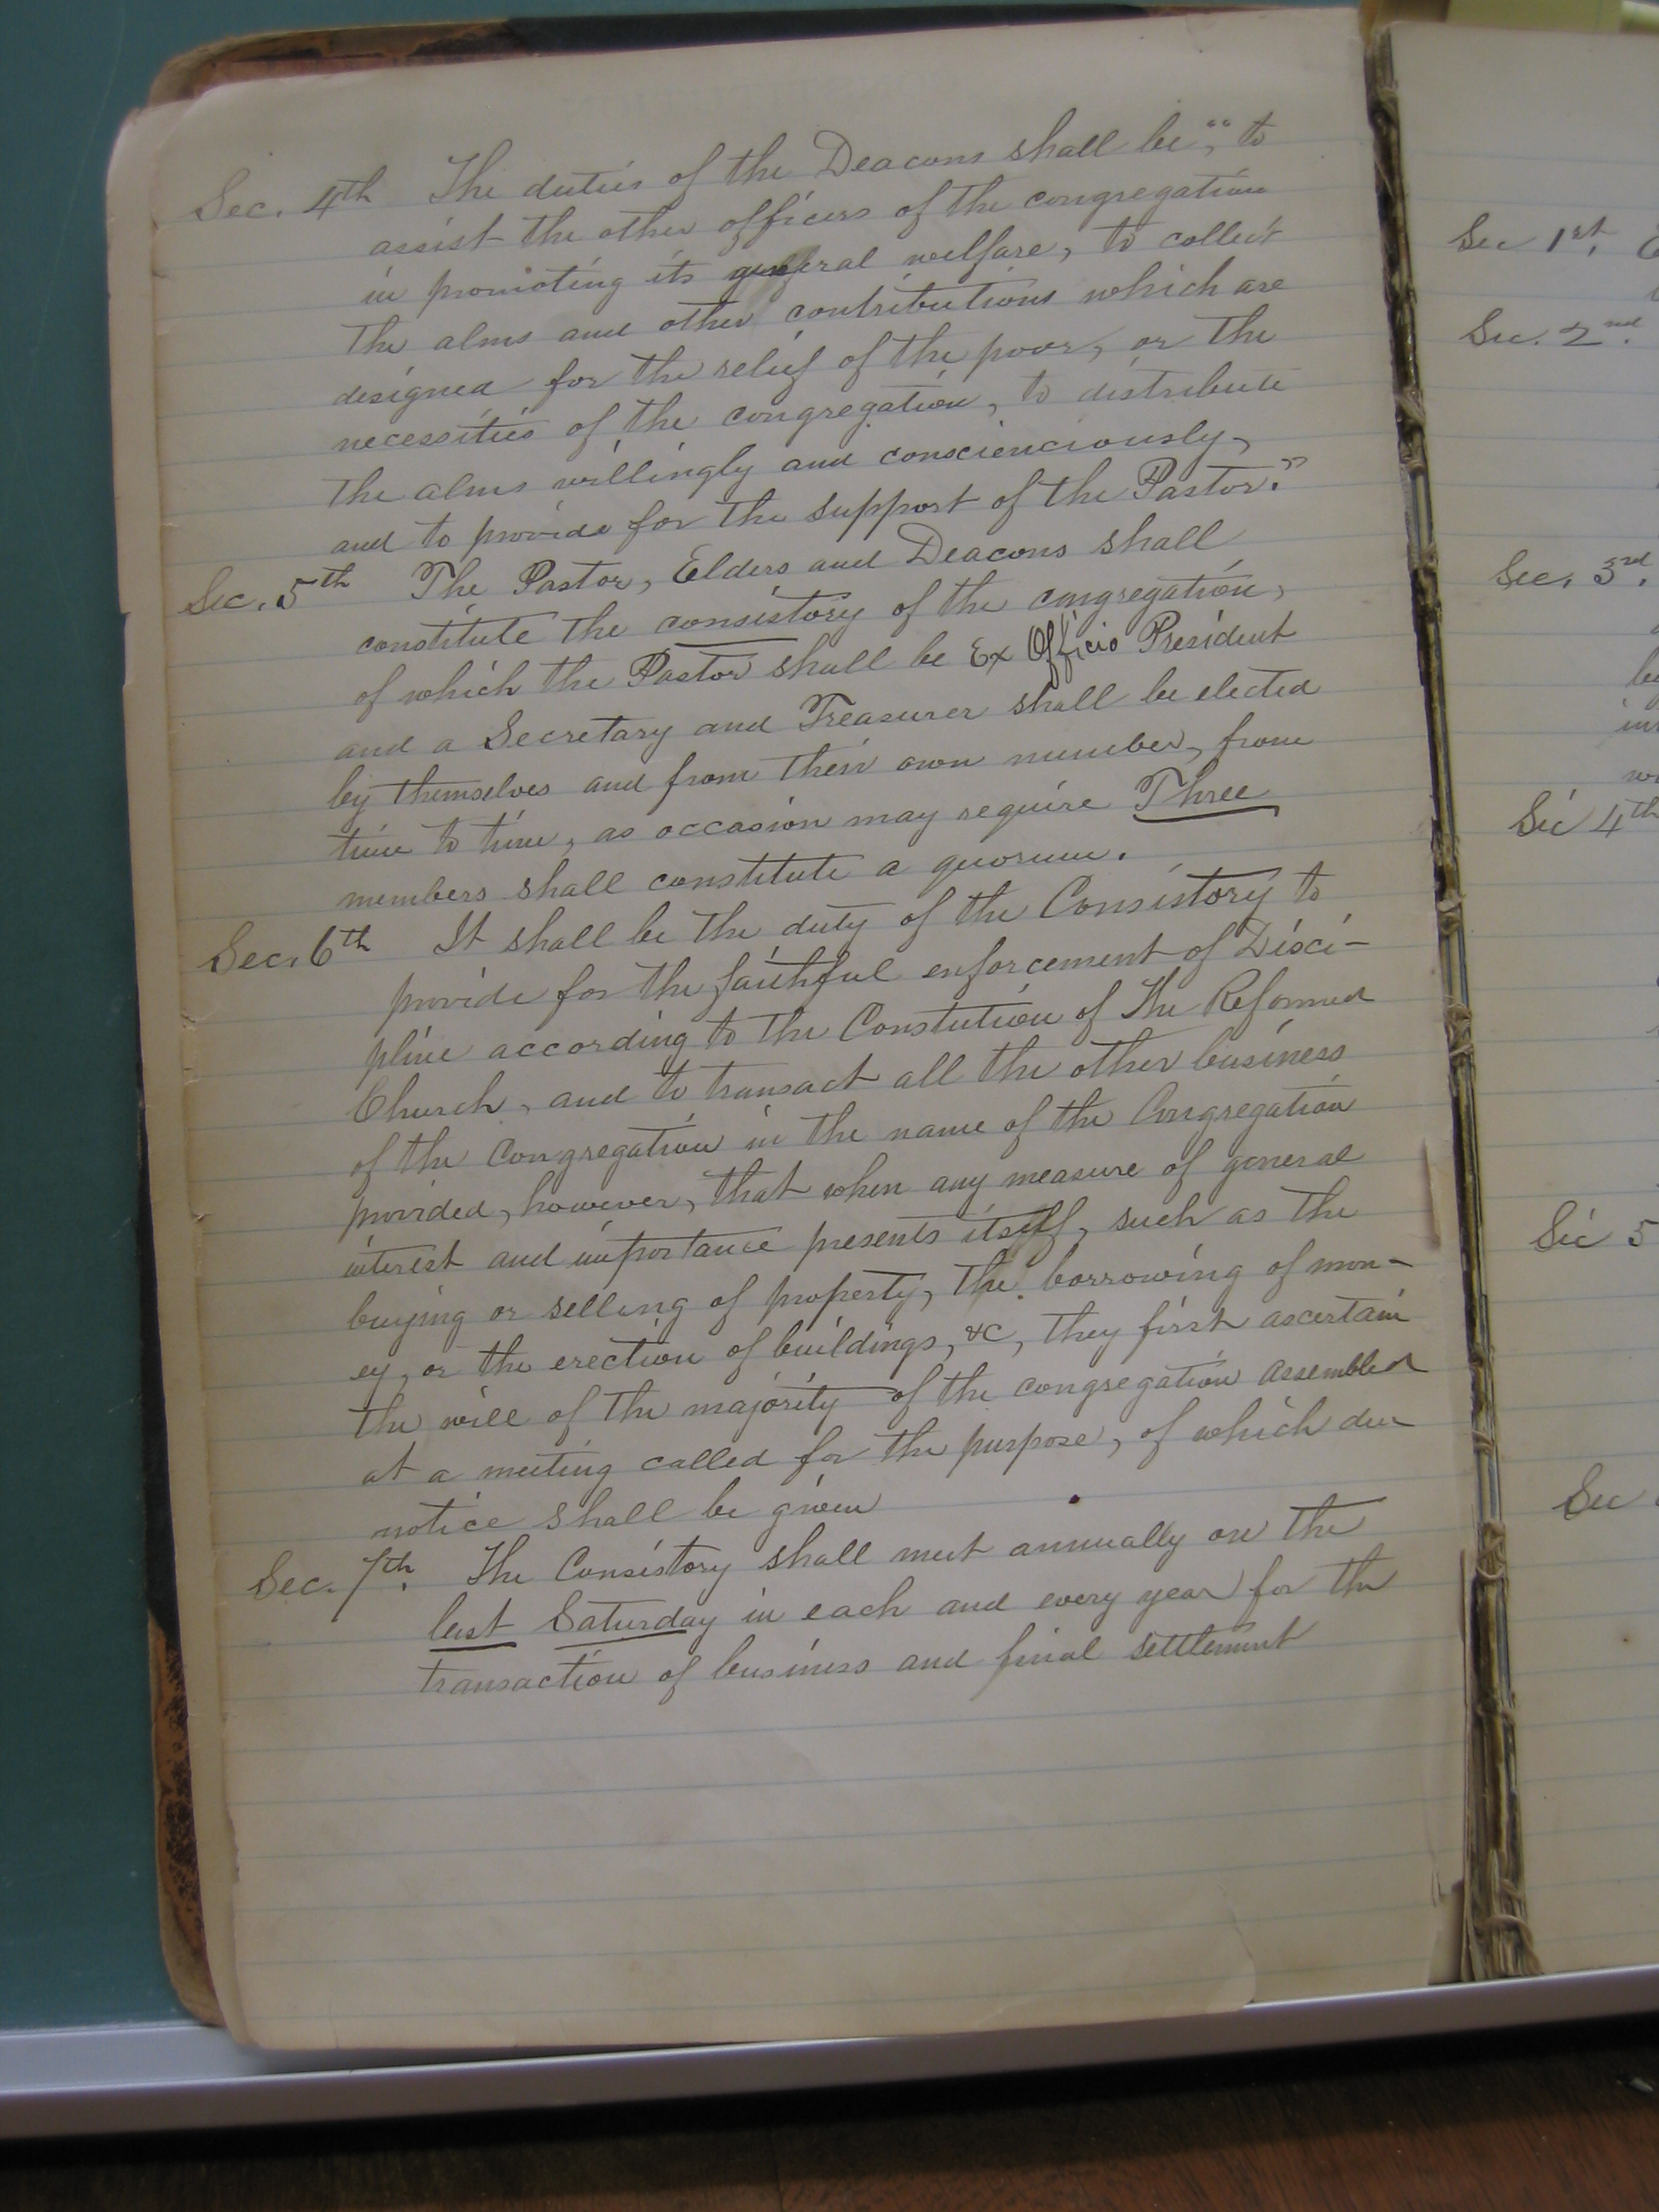 Sec. 4th The duties of the Deacons shall be, "to
assist the other officers of the congregation
in promoting its general welfare, to collect
the alms and other contributions which are
designed for the relief of the poor, or the
necessities of the congregation, to distribute
the alms willingly and conscienciously,
and to provide for the support of the Pastor."
Sec. 5th The Pastor, Elders and Deacons shall
constitute the consistory of the congregation,
of which the Pastor shall be Ex Officio President
and a Secretary and Treasurer shall be elected
by themselves and from their own number, from
time to time, as occasion may require Three
members shall constitute a quorum.
Sec. 6th It shall be the duty of the Consistory to
provide for the faithful enforcement of Disci-
pline according to the Constution of The Reformed
Church, and to transact all the other business
of the Congregation in the name of the Congregation
provided, however, that when any measure of general
interest and importance presents itself, such as the
buying or selling of property, the borrowing of mon-
ey, or the erection of buildings, &c, they first ascertain
the will of the majority of the congregation assembled
at a meeting called for the purpose, of which due
notice shall be given
Sec. 7th. The Consistory shall meet annually on the
last Saturday in each and every year for the
transaction of business and final settlement
Sec 1st.
Sec. 2nd.
Sec. 3rd.
Sec 4th
Sec 5
Sec